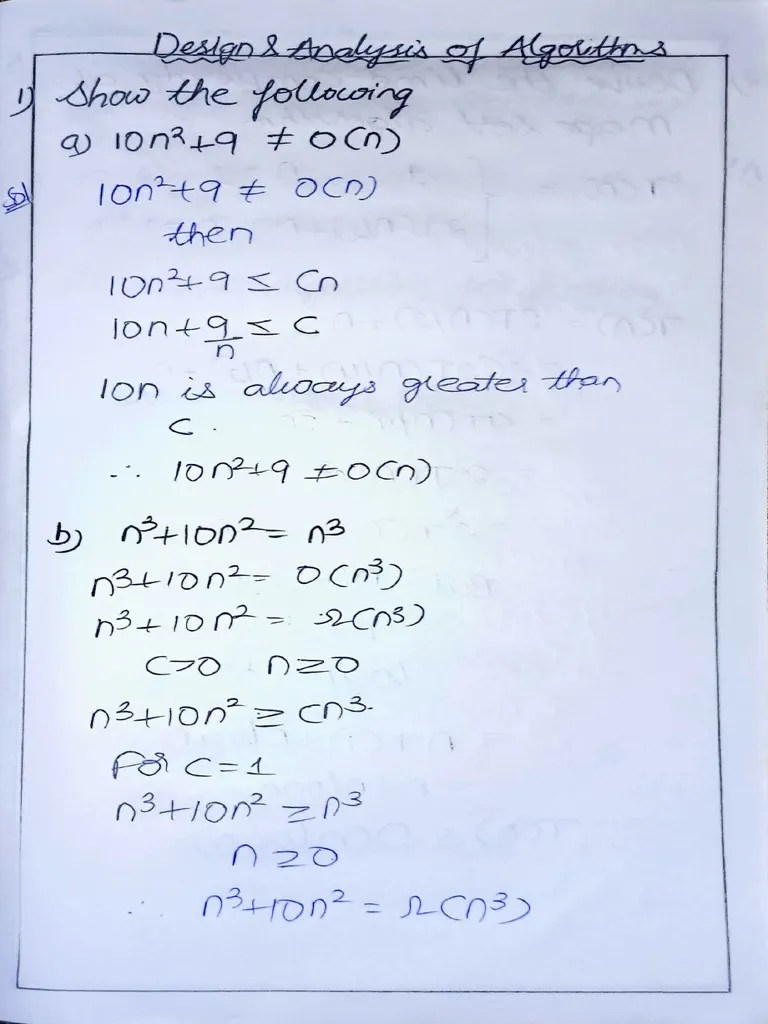 Design & Analysis of Algorithms
1) Show the following
a) 10n²+9 ≠ O(n)
Sol 10n²+9 ≠ O(n)
then
10n²+9 ≤ Cn
10n+9/n ≤ C
10n is always greater than
C.
∴ 10n²+9 ≠ O(n)
b) n³+10n² = n³
n³+10n² = O(n³)
n³+10n² = Ω(n³)
C>0 n≥0
n³+10n² ≥ Cn³.
For C=1
n³+10n² ≥ n³
n≥0
∴ n³+10n² = Ω(n³)